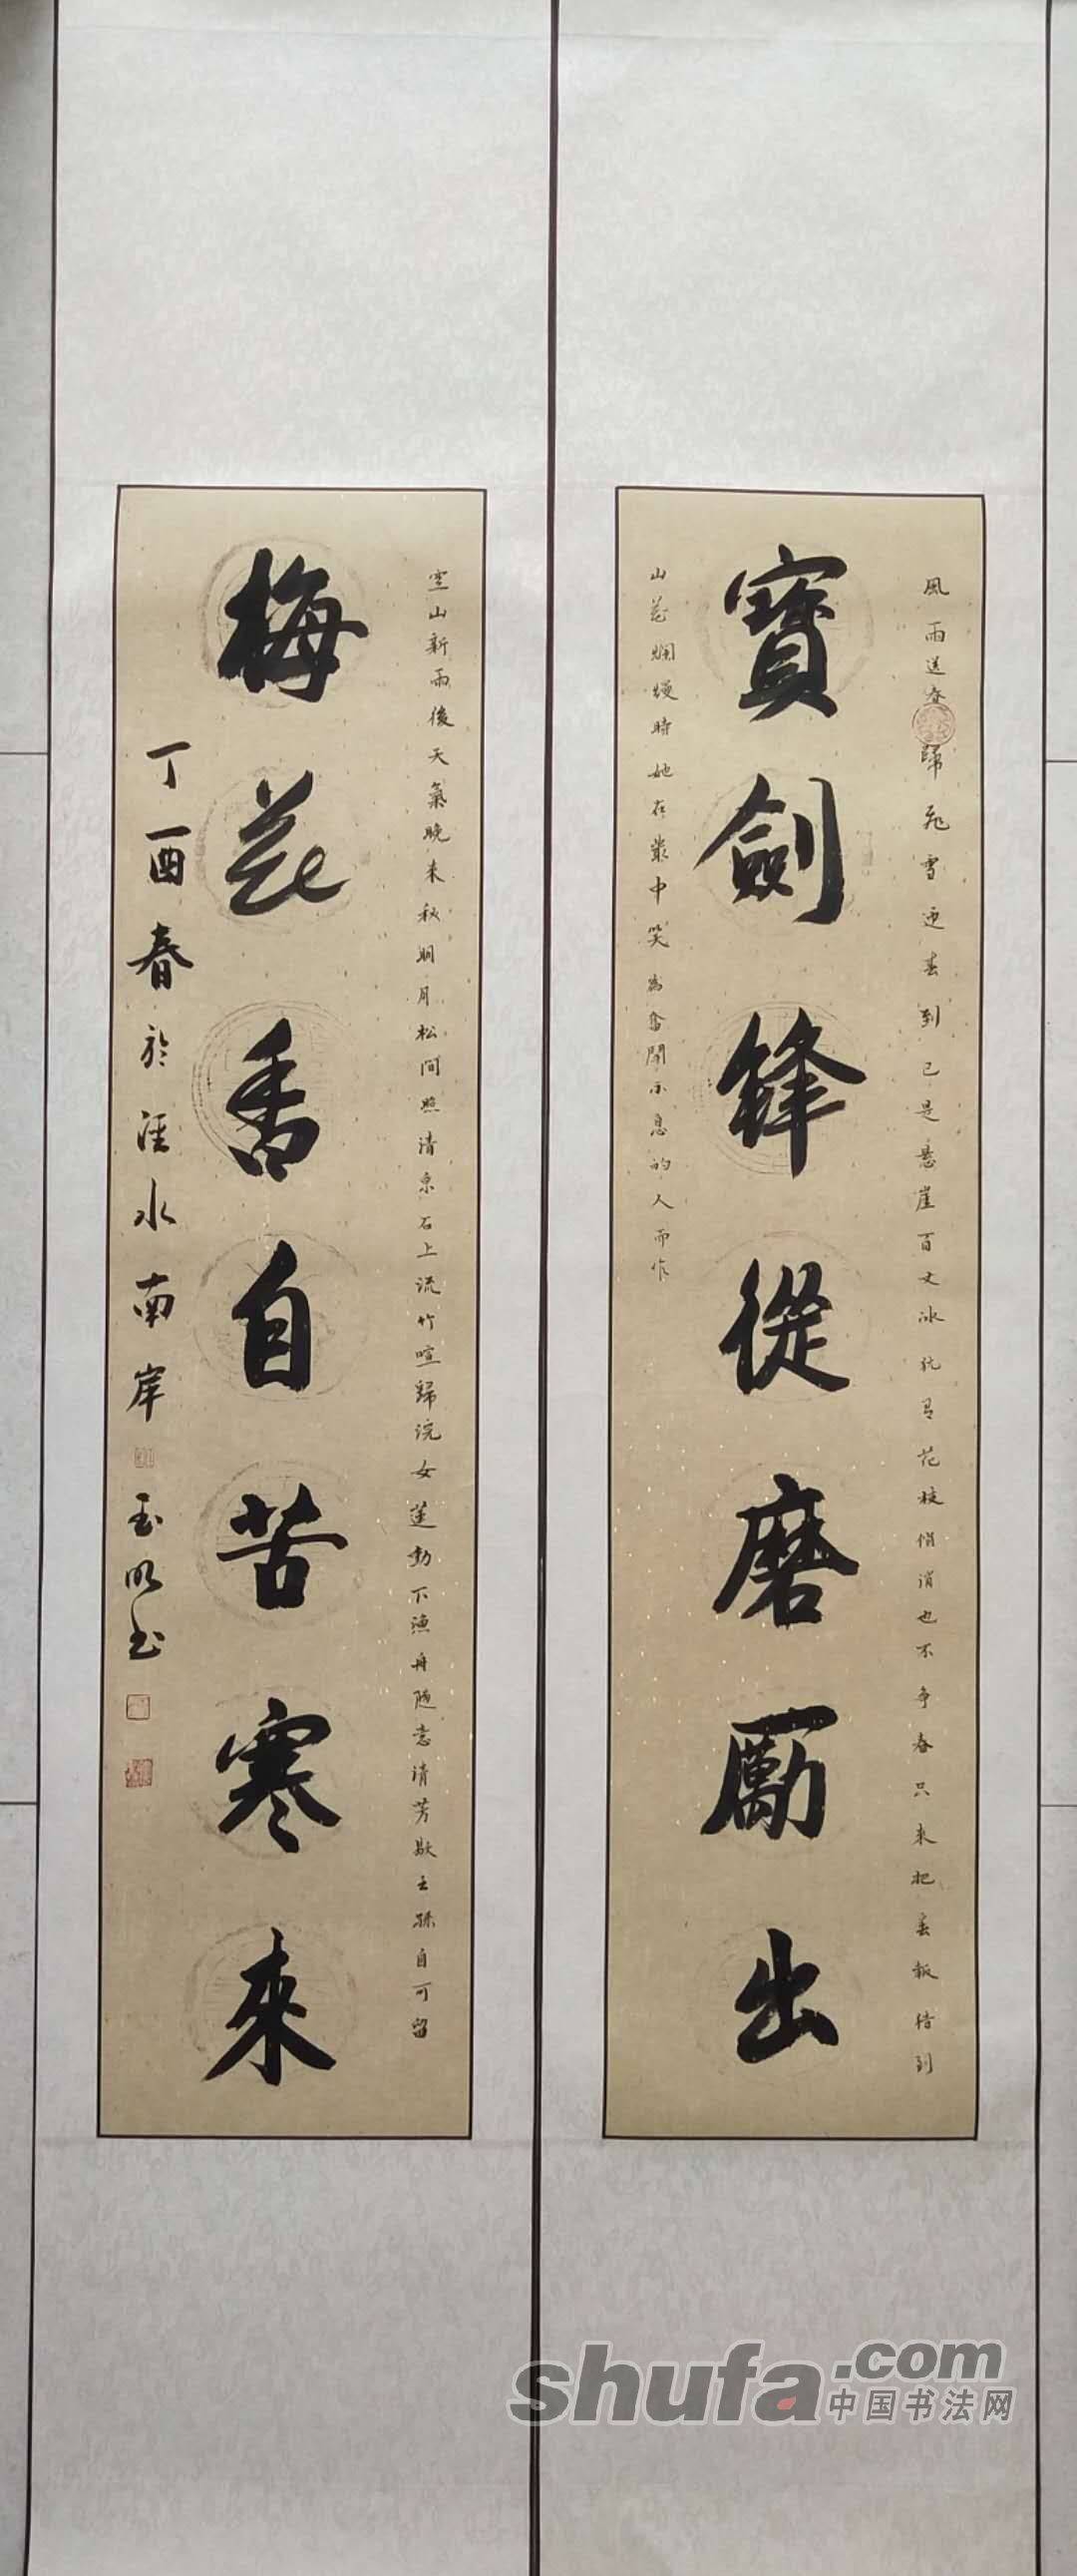 風雨送春歸飛雪迎春到已是懸崖百丈冰犹有花枝俏俏也不争春只来把春報待到
寶劍鋒從磨勵出
山花爛熳時她在叢中笑為奮鬥不息的人而作
空山新雨後天氣晚来秋明月松間照清泉石上流竹喧歸浣女蓮動下漁舟随意清芳歇王孫自可留
梅花香自苦寒來
丁酉春於涇水南岸
玉明书
shufa.com
中国书法网